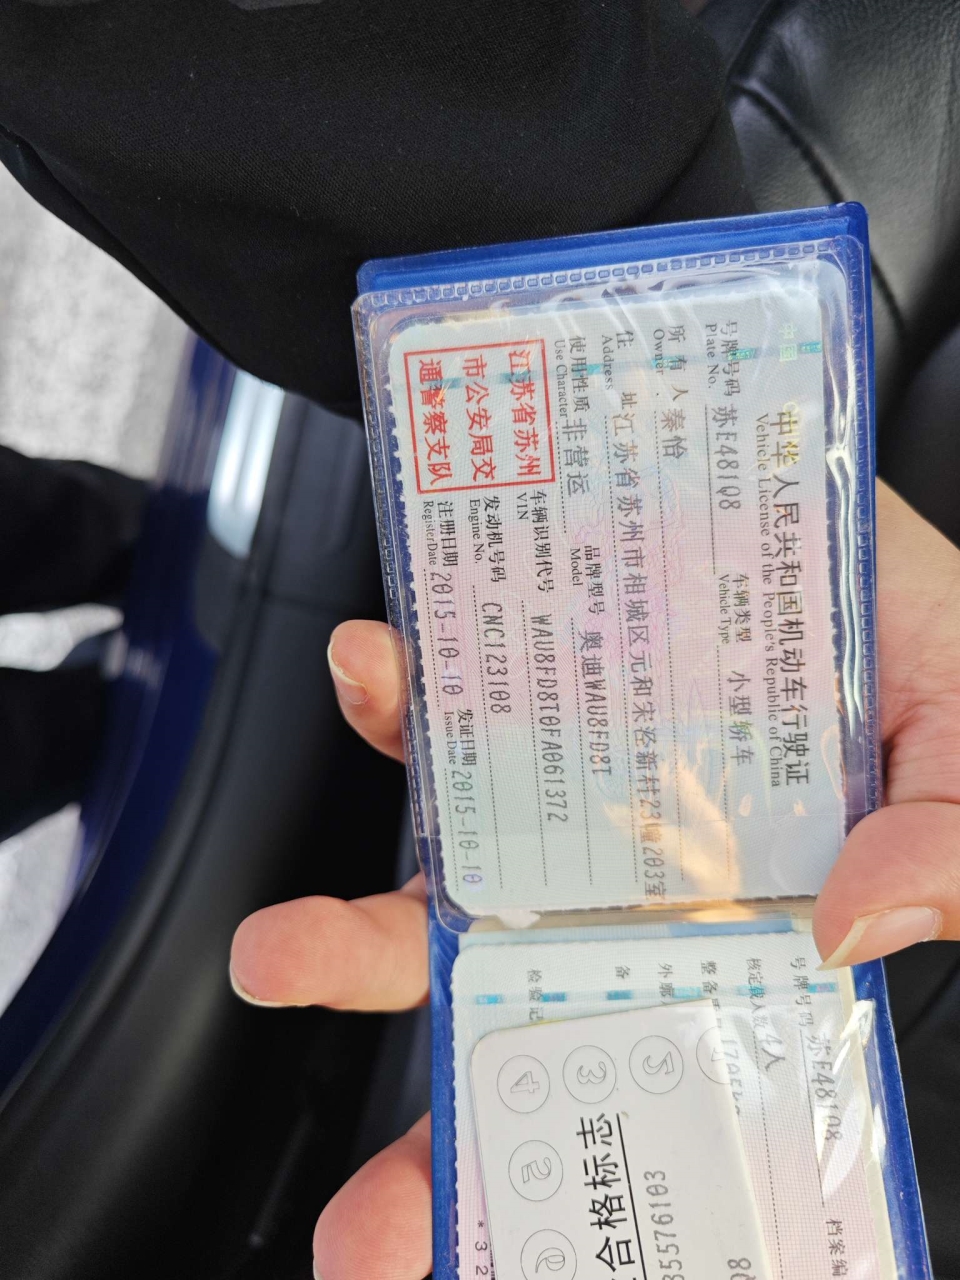 中国
中华人民共和国机动车行驶证
Vehicle License of the People's Republic of China
号牌号码 苏E48108 车辆类型 小型轿车
Plate No. Vehicle Type
所有人 秦怡
Owner
住址 江苏省苏州市相城区元和宋泾新村23幢203室
Address
使用性质 非营运 品牌型号 奥迪WAU8FD8T
Use Character Model
车辆识别代号 WAU8FD8T0FA061372
VIN
发动机号码 CNC123108
Engine No.
注册日期 2015-10-10 发证日期 2015-10-10
RegisterDate Issue Date
江苏省苏州
市公安局交
通警察支队
号牌号码 苏E48108 档案编
核定载人数 4人
整备质
外廓
备
检验记
5
3
4
2
合格标志
85576103
*32